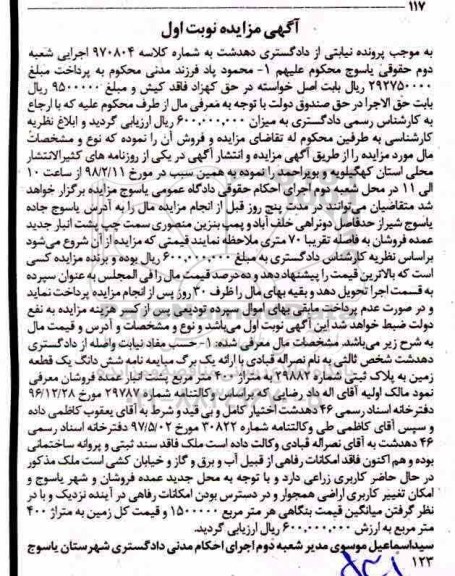 ۱۱۷
آگهی مزایده نوبت اول
به موجب پرونده نیابتی از دادگستری دهدشت به شماره کلاسه ۹۷۰۸۰۴ اجرایی شعبه
دوم حقوقی یاسوج محکوم علیهم ۱- محمود پاد فرزند مدنی محکوم به پرداخت مبلغ
۲۹۲۷۵۰۰۰۰ ریال بابت اصل خواسته در حق کهزاد فاقد کیش و مبلغ ۹۵۰۰۰۰۰ ریال
بابت حق الاجرا در حق صندوق دولت با توجه به معرفی مال از طرف محکوم علیه که با ارجاع
به کارشناس رسمی دادگستری به میزان ۶۰۰,۰۰۰,۰۰۰ ریال ارزیابی گردید و ابلاغ نظریه
کارشناسی به طرفین محکوم له تقاضای مزایده و فروش آن را نموده که نوع و مشخصات
مال مورد مزایده را از طریق آگهی مزایده و انتشار آگهی در یکی از روزنامه های کثیرالانتشار
محلی استان کهگیلویه و بویراحمد را نموده به همین سبب در مورخ ۹۸/۲/۱۱ از ساعت ۱۰
الی ۱۱ در محل شعبه دوم اجرای احکام حقوقی دادگاه عمومی یاسوج مزایده برگزار خواهد
شد متقاضیان می‌توانند در مدت پنج روز قبل از انجام مزایده مال را به آدرس یاسوج جاده
یاسوج شیراز حدفاصل دوراهی خلف آباد و پمپ بنزین منصوری سمت چپ پشت انبار جدید
عمده فروشان به فاصله تقریبا ۷۰ متری ملاحظه نمایند قیمتی که مزایده از آن شروع می‌شود
براساس نظریه کارشناس دادگستری به مبلغ ۶۰۰,۰۰۰,۰۰۰ ریال بوده و برنده مزایده کسی
است که بالاترین قیمت را پیشنهاد دهد و ده درصد قیمت مال را فی المجلس به عنوان سپرده
به قسمت اجرا تحویل دهد و بقیه بهای مال را ظرف ۳۰ روز پس از انجام مزایده پرداخت نماید
و در صورت عدم پرداخت مابقی بهای اموال سپرده تودیعی پس از کسر هزینه مزایده به نفع
دولت ضبط خواهد شد این آگهی نوبت اول می‌باشد و نوع و مشخصات و آدرس و قیمت مال
به شرح زیر می‌باشد. مشخصات مال معرفی شده: ۱- حسب مفاد نیابت واصله از دادگستری
دهدشت شخص ثالثی به نام نصراله قبادی با ارائه یک برگ مبایعه نامه شش دانگ یک قطعه
زمین به پلاک ثبتی شماره ۲۹۸۸۲ به متراژ ۴۰۰ متر مربع پشت انبار عمده فروشان معرفی
نمود مالک اولیه آقای اله داد رضایی که براساس وکالتنامه شماره ۲۹۷۸۷ مورخ ۹۶/۱۲/۲۸
دفترخانه اسناد رسمی ۴۶ دهدشت اختیار کامل و بی قید و شرط به آقای یعقوب کاظمی داده
و سپس آقای کاظمی طی وکالتنامه شماره ۳۰۸۲۲ مورخ ۹۷/۵/۰۲ دفترخانه اسناد رسمی
۴۶ دهدشت به آقای نصراله قبادی وکالت داده است ملک فاقد سند ثبتی و پروانه ساختمانی
بوده و هم اکنون فاقد امکانات رفاهی از قبیل آب و برق و گاز و خیابان کشی است ملک مذکور
در حال حاضر کاربری زراعی دارد و با توجه به محل جدید عمده فروشان و شهر یاسوج و
امکان تغییر کاربری اراضی همجوار و در دسترس بودن امکانات رفاهی در آینده نزدیک و با در
نظر گرفتن میانگین قیمت بنگاهی هر متر مربع ۱۵۰۰۰۰۰ و قیمت کل زمین به متراژ ۴۰۰
متر مربع به ارزش ۶۰۰,۰۰۰,۰۰۰ ریال ارزیابی گردید.
سیداسماعیل موسوی مدیر شعبه دوم اجرای احکام مدنی دادگستری شهرستان یاسوج
۱۲۳